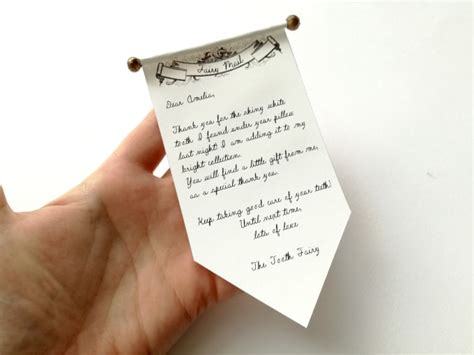 Fairy Mail
Dear Amelia,
Thank you for the shiny white
tooth I found under your pillow
last night! I am adding it to my
bright collection.
You will find a little gift from me,
as a special thank you.
Keep taking good care of your teeth!
Until next time,
lots of love
The Tooth Fairy